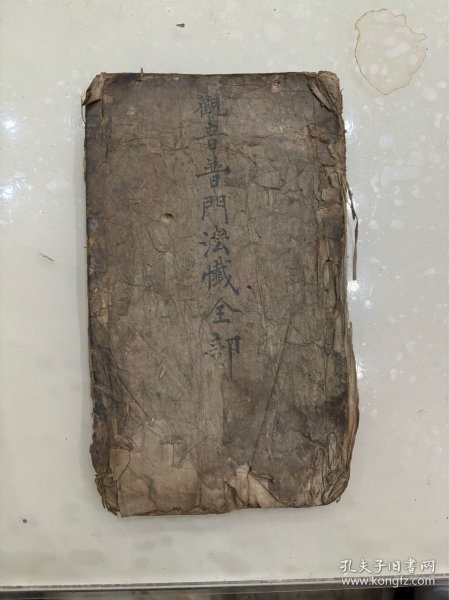 觀音普門法懺全部
孔夫子旧书网
www.kongfz.com